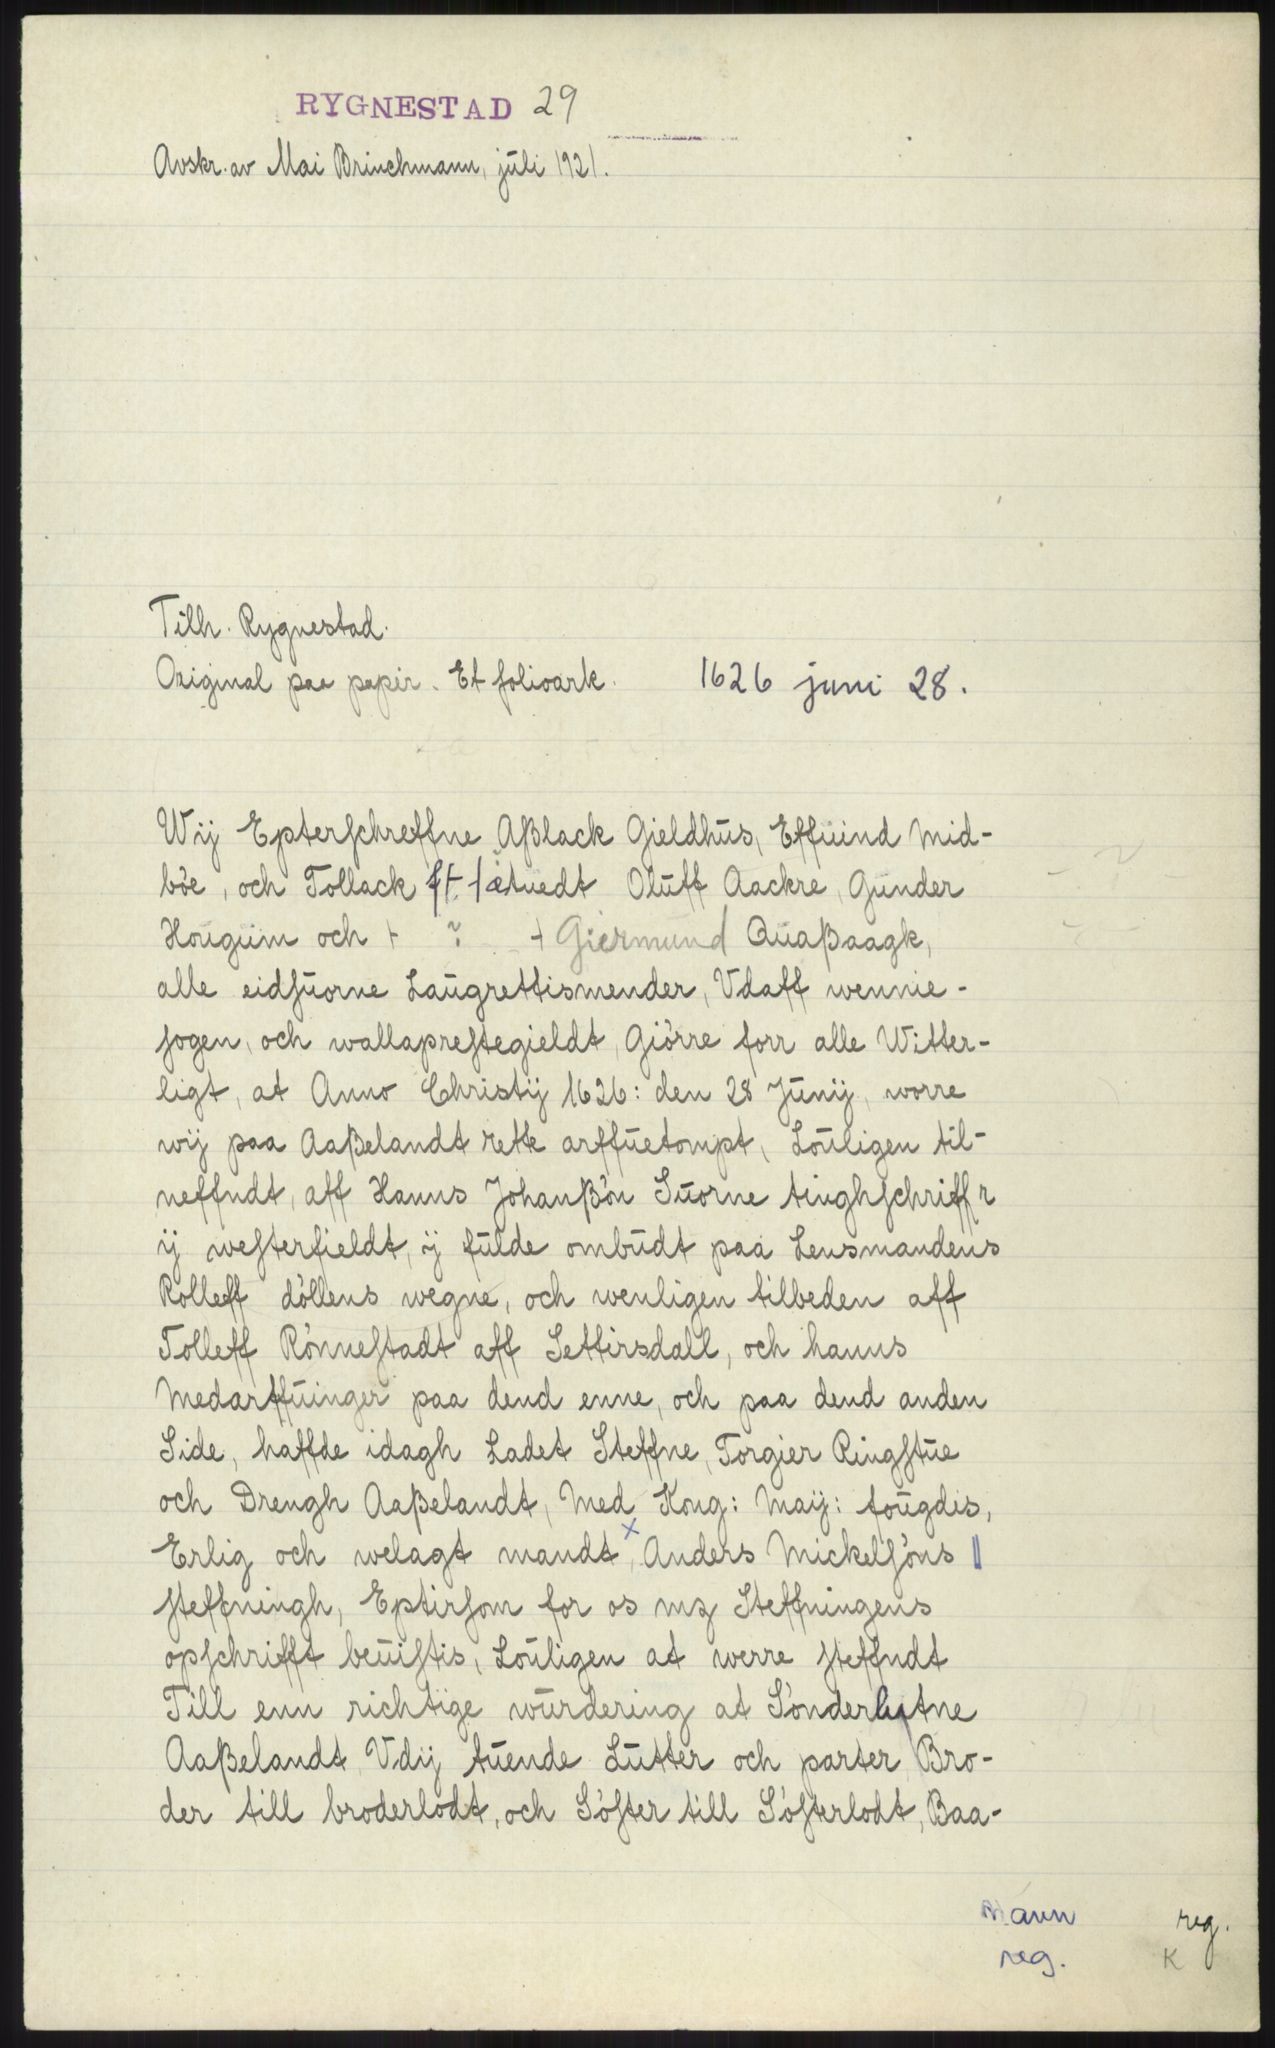 RYGNESTAD 29
Avskr. av Mai Brinchmann, juli 1921.
Tilh. Rygnestad.
Original paa papir. Et folioark. 1626 juni 28.
Wij Epterschreffne Aßlack Gieldhus, Effuind Mid-
böe, och Tollack Oluff Aackre, Gunder
Hougum och + ? + Giermund Quaßaagk,
alle eidsuorne Laugrettismender, Vdaff wennie-
sogen, och wallaprestegieldt, Giörre forr alle Witter-
ligt, at Anno Christij 1626: den 28 Junij, worre
wij paa Aaßelandt rette arffuetompt, Louligen til-
neffndt, aff Hanns Johanßön Suorne tinghschriffr
ij westerfieldt, ij fulde ombudt paa Lensmandens
Rolleff döllens wegne, och wenligen tilbeden aff
Tolleff Rönnestadt aff Settirsdall, och hanns
Medarffuinger paa dend enne, och paa dend anden
Side, haffde idagh Ladet Steffne, Torgier Ringstue
och Drengh Aaßelandt, Med Kong: Maij: fougdis,
Erlig och welagt mandt, x Anders Mickelsöns ||
steffningh, Eptirsom for os mz Steffningens
opschrifft beuistis, Louligen at werre steffndt
Till enn richtige wurdering at Sönderlutne
Aaßelandt Vdij tuende Lutter och parter, Bro-
der till broderlodt, och Söster till Sösterlodt, Baa-
Mann reg.
reg. K